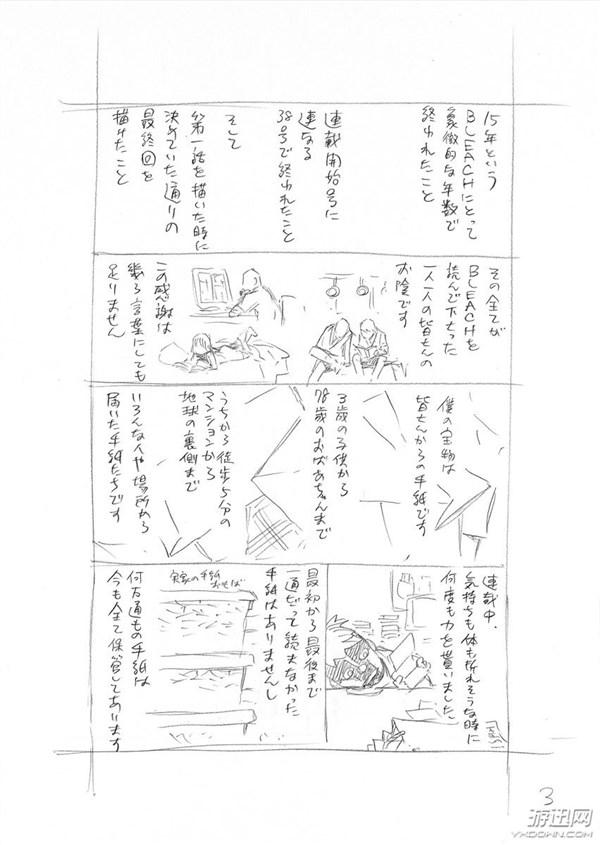 15年という
BLEACHにとって
象徴的な年数で
終われたこと
連載開始号に
連なる
38号で終われたこと
そして
第一話を描いた時に
決めていた通りの
最終回を
描けたこと
その全てが
BLEACHを
読んで下さった
一人一人の皆さんの
お陰です
この感謝は
幾ら言葉にしても
足りません
僕の宝物は
皆さんからの手紙です
3歳の子供から
78歳のおばあちゃんまで
うちから徒歩5分の
マンションから
地球の裏側まで
いろんな人や場所から
届いた手紙たちです
連載中、
気持ちも体も折れそうな時に
何度も力を貰いました
最初から最後まで
一通だって読まなかった
手紙はありませんし
何万通もの手紙は
今も全て保管してあります
3
游迅网
YXDOWN.COM